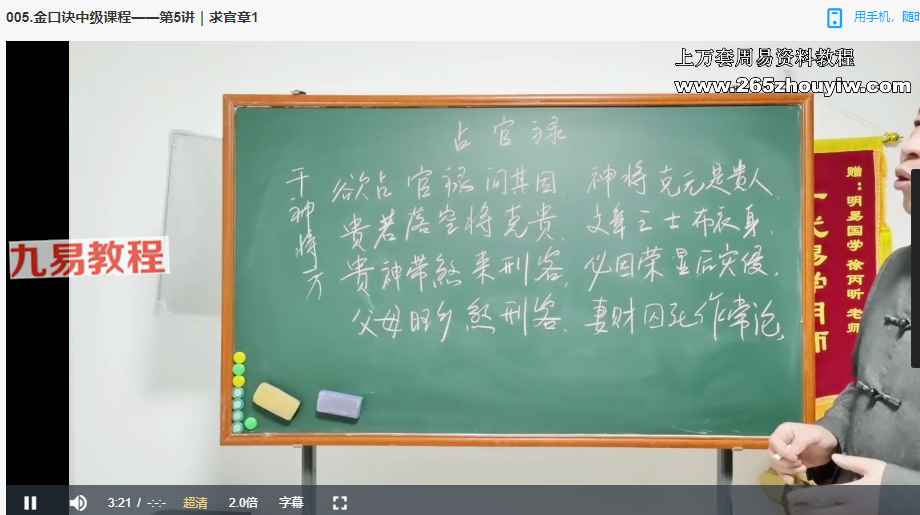 005.金口诀中级课程——第5讲｜求官章1
用手机，随时
上万套周易资料教程
www.265zhouyiw.com
占官禄
干神将方
欲占官禄问其因 神将克元是贵人
贵若落空将克贵、文章之士布衣身.
贵神带煞来刑客, 必因荣显后灾侵.
父母旺乡煞刑客、妻财囚死作常论,
九易教程
赠：明易国学 徐丙昕 老师
易学明师
3:21 / -:-:-
超清
2.0倍
字幕